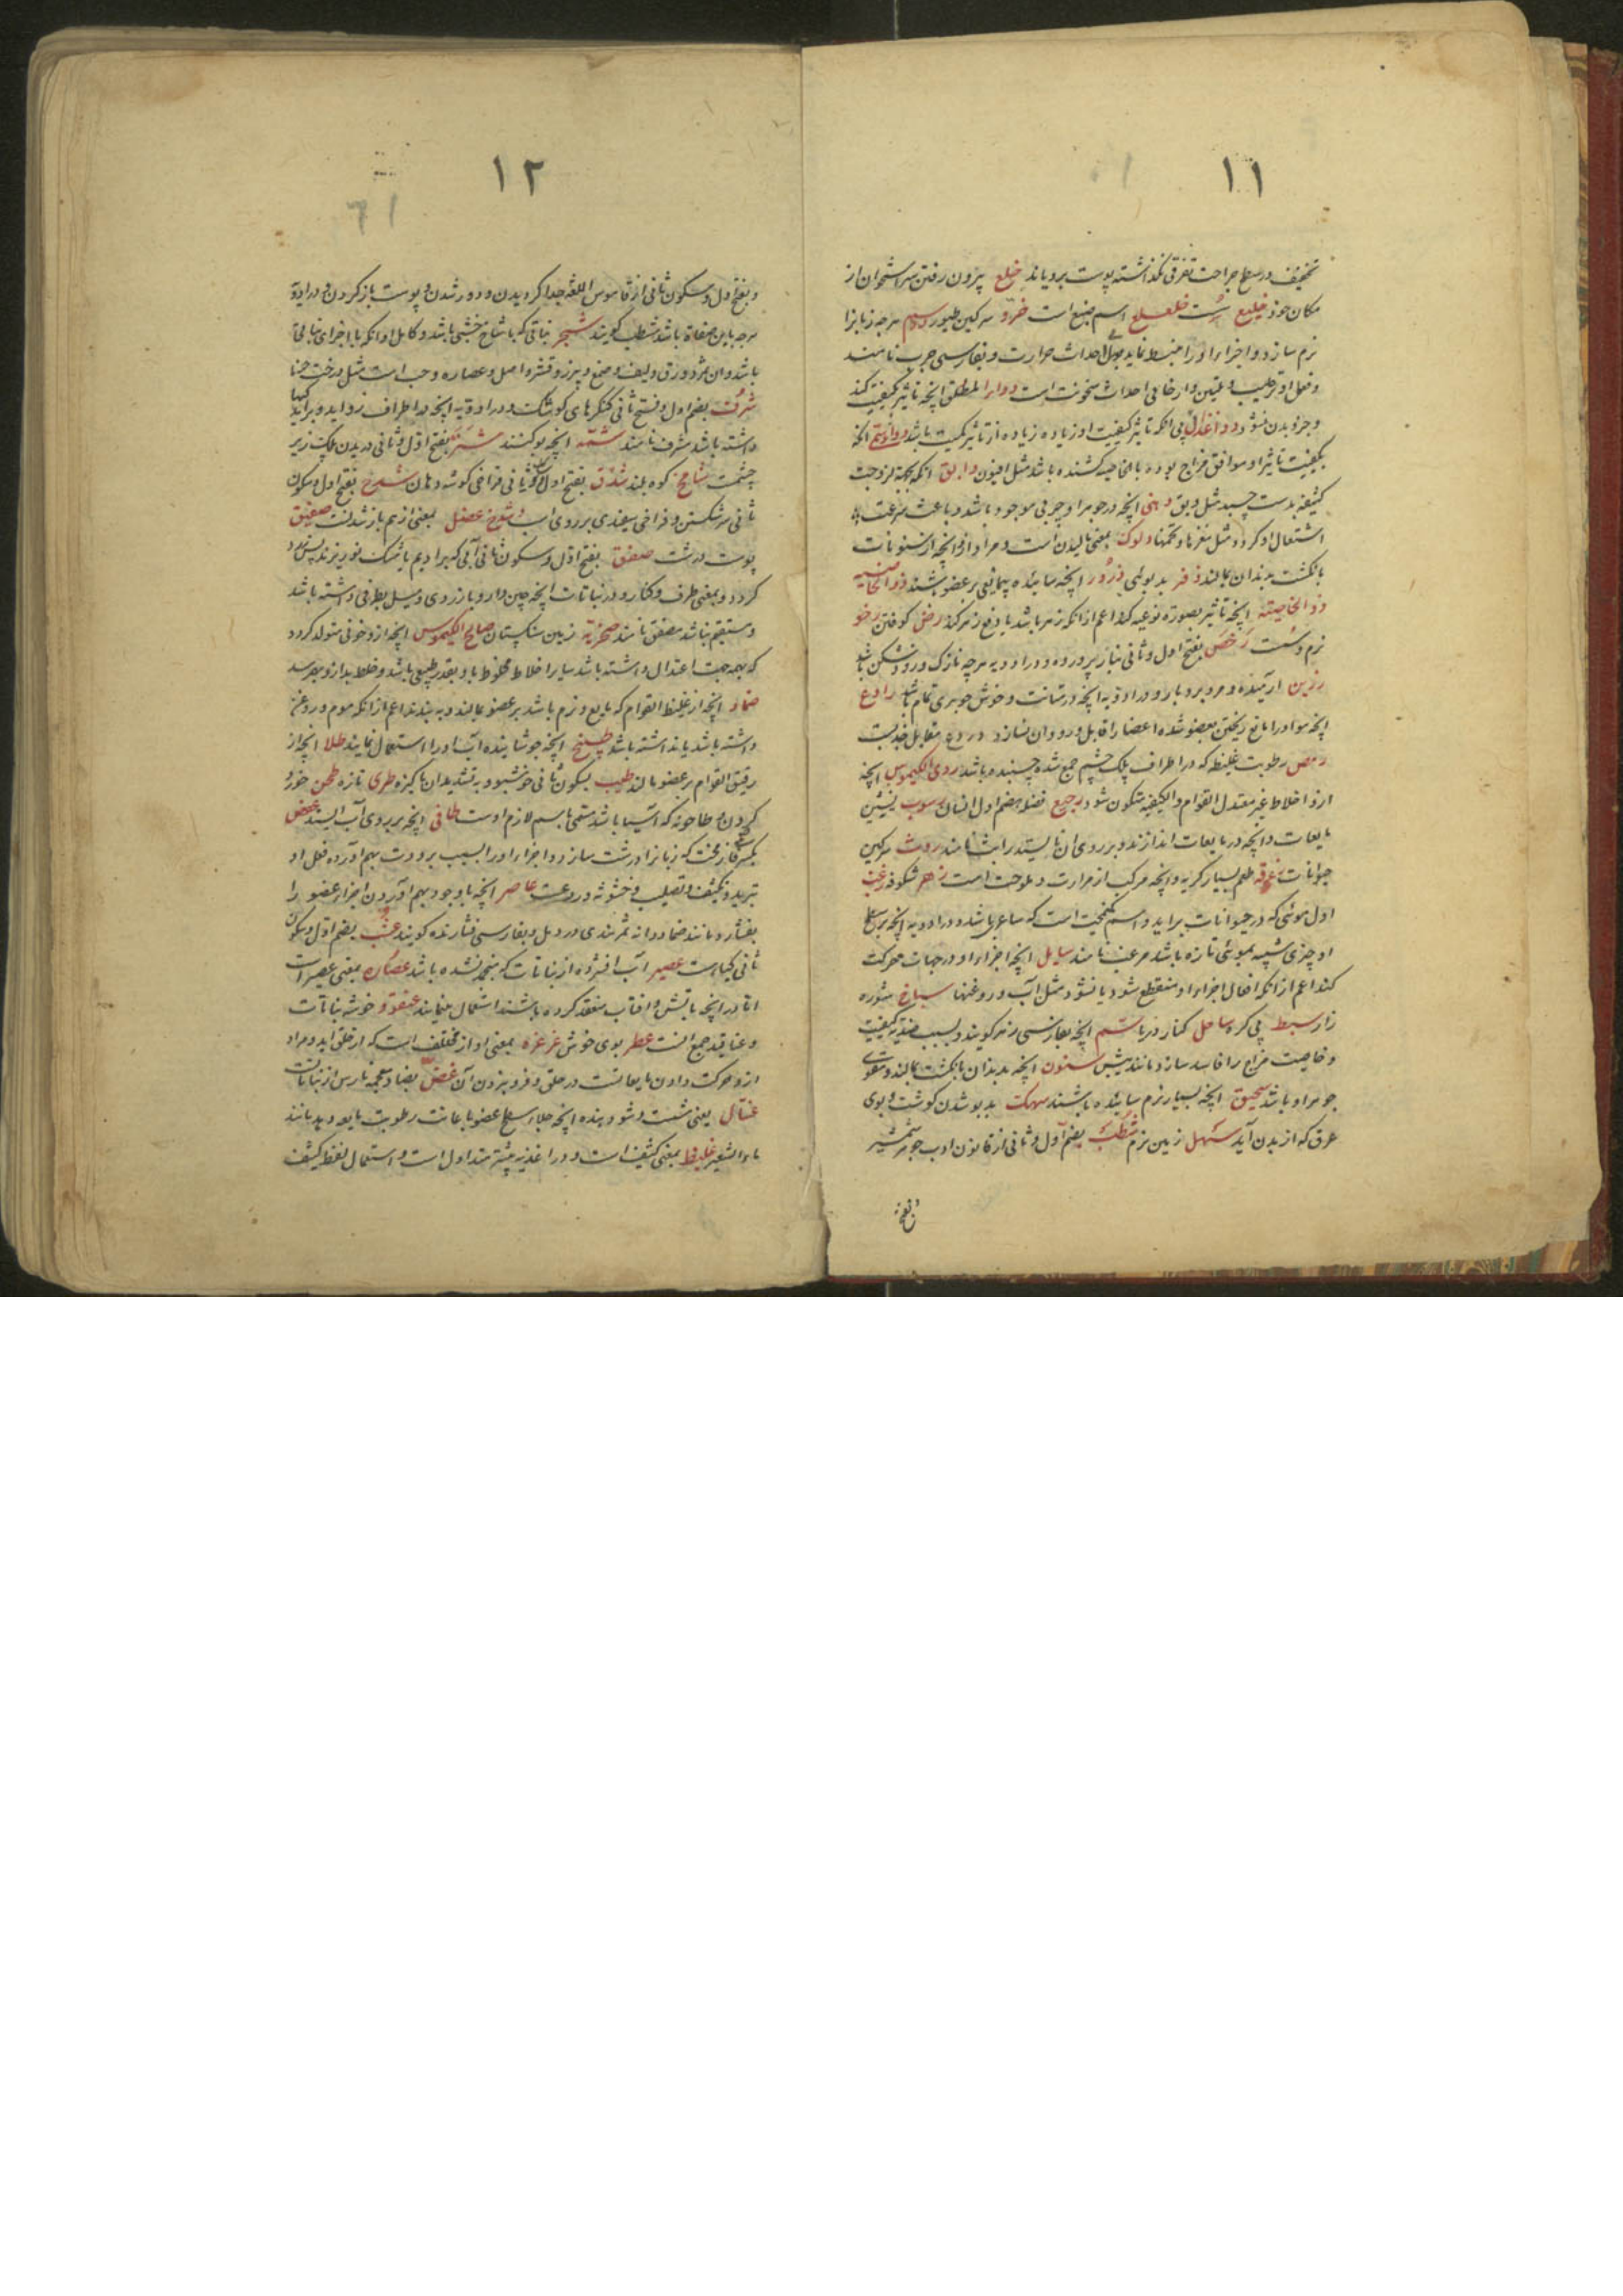 ١١
در سطح جراحت تفرقی نگذاشته پوست برویاند خلع بیرون رفتن سر استخوان از
مکان خود خلیع است اسم ضبع است سرکین طیور دسم هرچه زبانرا
نرم سازد و اجزاء او را منبسط نماید احداث حرارت و بفارسی چرب نامند
و فعل او ترطیب و تلیین و ارخاء بی احداث سخونت است دواء المطلق انچه تاثیر بکیفیت کند
و جزو بدن نشود دواء غذائی انکه تاثیر کیفیت او زیاده از تاثیر کمیت باشد انکه
بکیفیت تاثیر او موافق مزاج نبوده بالخاصیه کشنده باشد مثل افیون دابق انکه بجهة لزوجت
بدست چسبد مثل دبق دهنی انچه در جوهر او چربی موجود باشد و باعث سرعت
اشتعال او کردد مثل مغزها و تخمها دلوک بمعنی مالیدن است و مراد ازو انچه از سنونات
بانکشت بدندان بمالند ذفر بدبوئی ذرور انچه سائیده بر عضو پاشند ذو الخاصیه
ذو الخاصیته انچه تاثیر بصورة نوعیه کند اعم از انکه زهر باشد یا دفع زهر کند رض کوفتن رخو
نرم و سست رخص بفتح اول و ثانی بناز پرورده و در ادویه هرچه نازک و زود شکن باشد
رزین ارمیده و مرد بردبار و در ادویه انچه در متانت و خوش جوهری تمام باشد رادع
انچه مواد را مانع ریختن بعضو شده اعضا را قابل ورود ان نسازد و ردع مقابل جذبست
رمص رطوبت غلیظ که در اطراف پلک چشم جمع شده چسبنده باشد ردی الکیموس انچه
ازو اخلاط غیر معتدل القوام و الکیفیه متکون شود رجیع فضله هضم اول انسان رسوب ته نشین
مایعات و انچه در مایعات اندازند و بر روی ان نایستد راسب نامند روث سرکین
حیوانات طعم بسیار کریه و انچه مرکب از مرارت و ملوحت است زهر شکوفه زغب
اول موئی که در حیوانات براید و اسم است که ساعر باشد و در ادویه انچه بر سطح
او چیزی شبیه بموئی تازه باشد مزغب نامند سایل انچه اجزاء او در جهات حرکت
کند اعم از انکه اتصال اجزاء او منقطع شود یا نشود مثل آب و روغنها سباخ شوره
زار سبط بی کره ساحل کنار دریا سم انچه بفارسی زهر کویند و بسبب ضدیة کیفیت
و خاصیت مزاج را فاسد سازد مانند بیش سنون انچه بدندان بانکشت بمالند و مقوی
جوهر او باشد سحیق انچه بسیار نرم سائیده باشند سهک بدبو شدن کوشت و بوی
عرق که از بدن آید سهل زمین نرم شطب بضم اول و ثانی از قانون ادب جوهر شمشیر
و بفتح
١٢
و بفتح اول و سکون ثانی از قاموس اللغه جدا کردیدن و دور شدن و پوست باز کردن و در ادویه
هرچه باین صفات باشد شطب کویند شجر نباتی که با شاخ خشبی باشد و کامل او انکه با اجزای نباتی
باشد و ان ثمر و ورق و لیف و صمغ و بزر و قشر و اصل و عصاره و حب است مثل درخت حنا
شرف بضم اول و فتح ثانی کنکرهای کوشک و در ادویه انچه در اطراف
داشته باشد مشرف نامند شمه انچه بو کنند شتر بفتح اول و ثانی دریدن پلک زیر
چشمست شامخ کوه بلند شدق بفتح اول و سکون ثانی فراخی کوشه دهان شدخ بفتح اول و سکون
ثانی سر شکستن و فراخی سفیدی بر روی اسب و شدخ عضل بمعنی از هم باز شدنست صفیق
پوست درشت صفق بفتح اول و سکون ثانی آبی که بر ادیم یا مشک نو ریزند پس زرد
کردد و بمعنی طرف و کنار و در نباتات انچه چین دار و باز روی و میل بطرفی داشته باشد
و مستقیم نباشد مصفق نامند صخریه زمین سنکستان صالح الکیموس انچه ازو خونی متولد کردد
که بهمه جهت اعتدال داشته باشد سایر اخلاط مخلوط باو بقدر طبیعی باشد و خلط بد ازو بهم نرسد
ضماد انچه از غلیظ القوام که مایع و نرم باشد بر عضو بمالند و به بندند اعم از انکه موم و روغن
داشته باشد یا نداشته باشد طبیخ انچه جوشانیده آب او را استعمال نمایند طلا انچه از
رقیق القوام بر عضو مالند طیب بسکون ثانی خوشبو و به تشدید ان پاکیزه طری تازه طحن خورد
کردن و طاحونه که آسیا باشد مسمی باسم لازم اوست طافی انچه بر روی آب ایستد عفص
بکسر فا زمخت که زبانرا درشت سازد و اجزاء او را بسبب برودت بهم آورده فعل او
تبرید و تکثیف و تصلیب و خشونه و ردعست عاصر انچه باوجود بهم آوردن اجزاء عضو را
بفشارد مانند ضماد دانه تمر هندی در دمل و بفارسی فشارنده کویند عشب بضم اول و سکون
ثانی کیاه است عصیر آب افشرده از نباتات که منجمد نشده باشد عصاره بمعنی عصیر است
اما در انچه باتش و افتاب منعقد کرده باشند استعمال مینمایند عنقود خوشه نباتات
و عناقید جمع انست عطر بوی خوش غرغره بمعنی اواز مختلف است که از حلق اید و مراد
ازو حرکت دادن مایعاتست در حلق و فرو نبردن آن غض بضاد معجمه نارس از نباتاتست
غسال یعنی شست و شو دهنده انچه جلاء سطح عضو باعانت رطوبت مایعه دهد مانند
ماء الشعیر غلیظ بمعنی کثیف است و در اغذیه بیشتر متداول است و استعمال لفظ کثیف